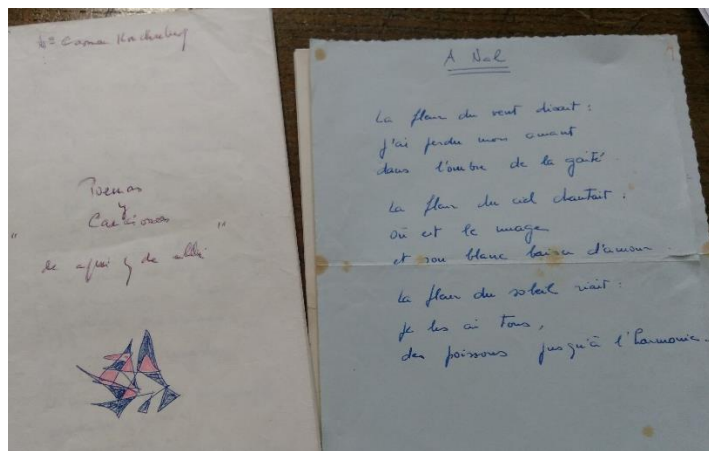 Mª Carmen
Poemas
y
Canciones
" "
de aquí y de allá
A Nal
La fleur du vent disait :
j'ai perdu mon amant
dans l'ombre de la gaîté.
La fleur du ciel chantait :
où est le nuage
et son blanc baiser d'amour.
La fleur du soleil riait :
je les ai tous,
des poissons jusqu'à l'Harmonie.